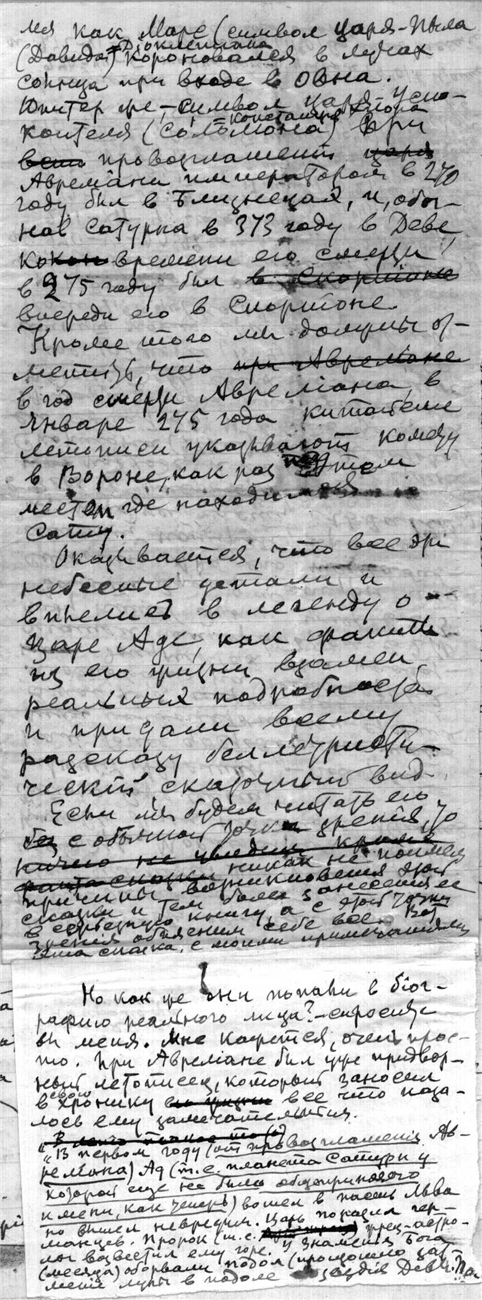 мя как Марс (символ царя-пыла
(Давида) Диоклетиана короновался в лучах
солнца при входе в Овна.
Юпитер же,—символ царя успо-
коителя (Соломона) Констанция Хлора при
провозглашении
Аврелiана императором в 270
году был в Близнецах, и, обо-
гнав Сатурна в 373 году в Деве
ко времени его смерти
в 275 году был в Скорпiоне
впереди его в Скорпiоне.
Кроме того мы должны от-
метить, что при Аврелiане
в год смерти Аврелiана в
январе 275 года китайские
летописи указывают комету
в Вороне, как раз под тем
местом где находился
Сатурн.
Оказывается, что все эти
небесные детали и
вплелись в легенду о
царе Аде, как факты
из его жизни взамен
реальных подробностей
и придали всему
разсказу беллетристи-
ческiй сказочный вид.
Если мы будем читать его
без с обычной точки зрения, то
ничего не увидим кроме
сказки никак не поймем
причины возникновения этой
сказки и тем более занесения ее
в серьезную книгу, а с этой точки
зрения объясним себе все. Вот
эта сказка, с моими примечаниями
Но как же они попали в бiог-
рафию реального лица?—спросите
вы меня. Мне кажется, очень прос-
то. При Аврелiане был уже придвор-
ный летописец, который заносил
в свою хронику все что каза-
лось ему замечательным.
"В первом году (от провозглашенiя Ав-
релiана) Ад (т.е. планета Сатурн у
которой еще не было общепринятого
имени, как теперь) вошел в пасть Льва
но вышел невредим. Царь поразил гер-
манцев. Пророк (т.е. жрец-астро-
лог возвестил ему горе. У знамения Бога
(месяца) оборвали подол (произошло зат-
менiе луны в подоле созвездiя Девы).